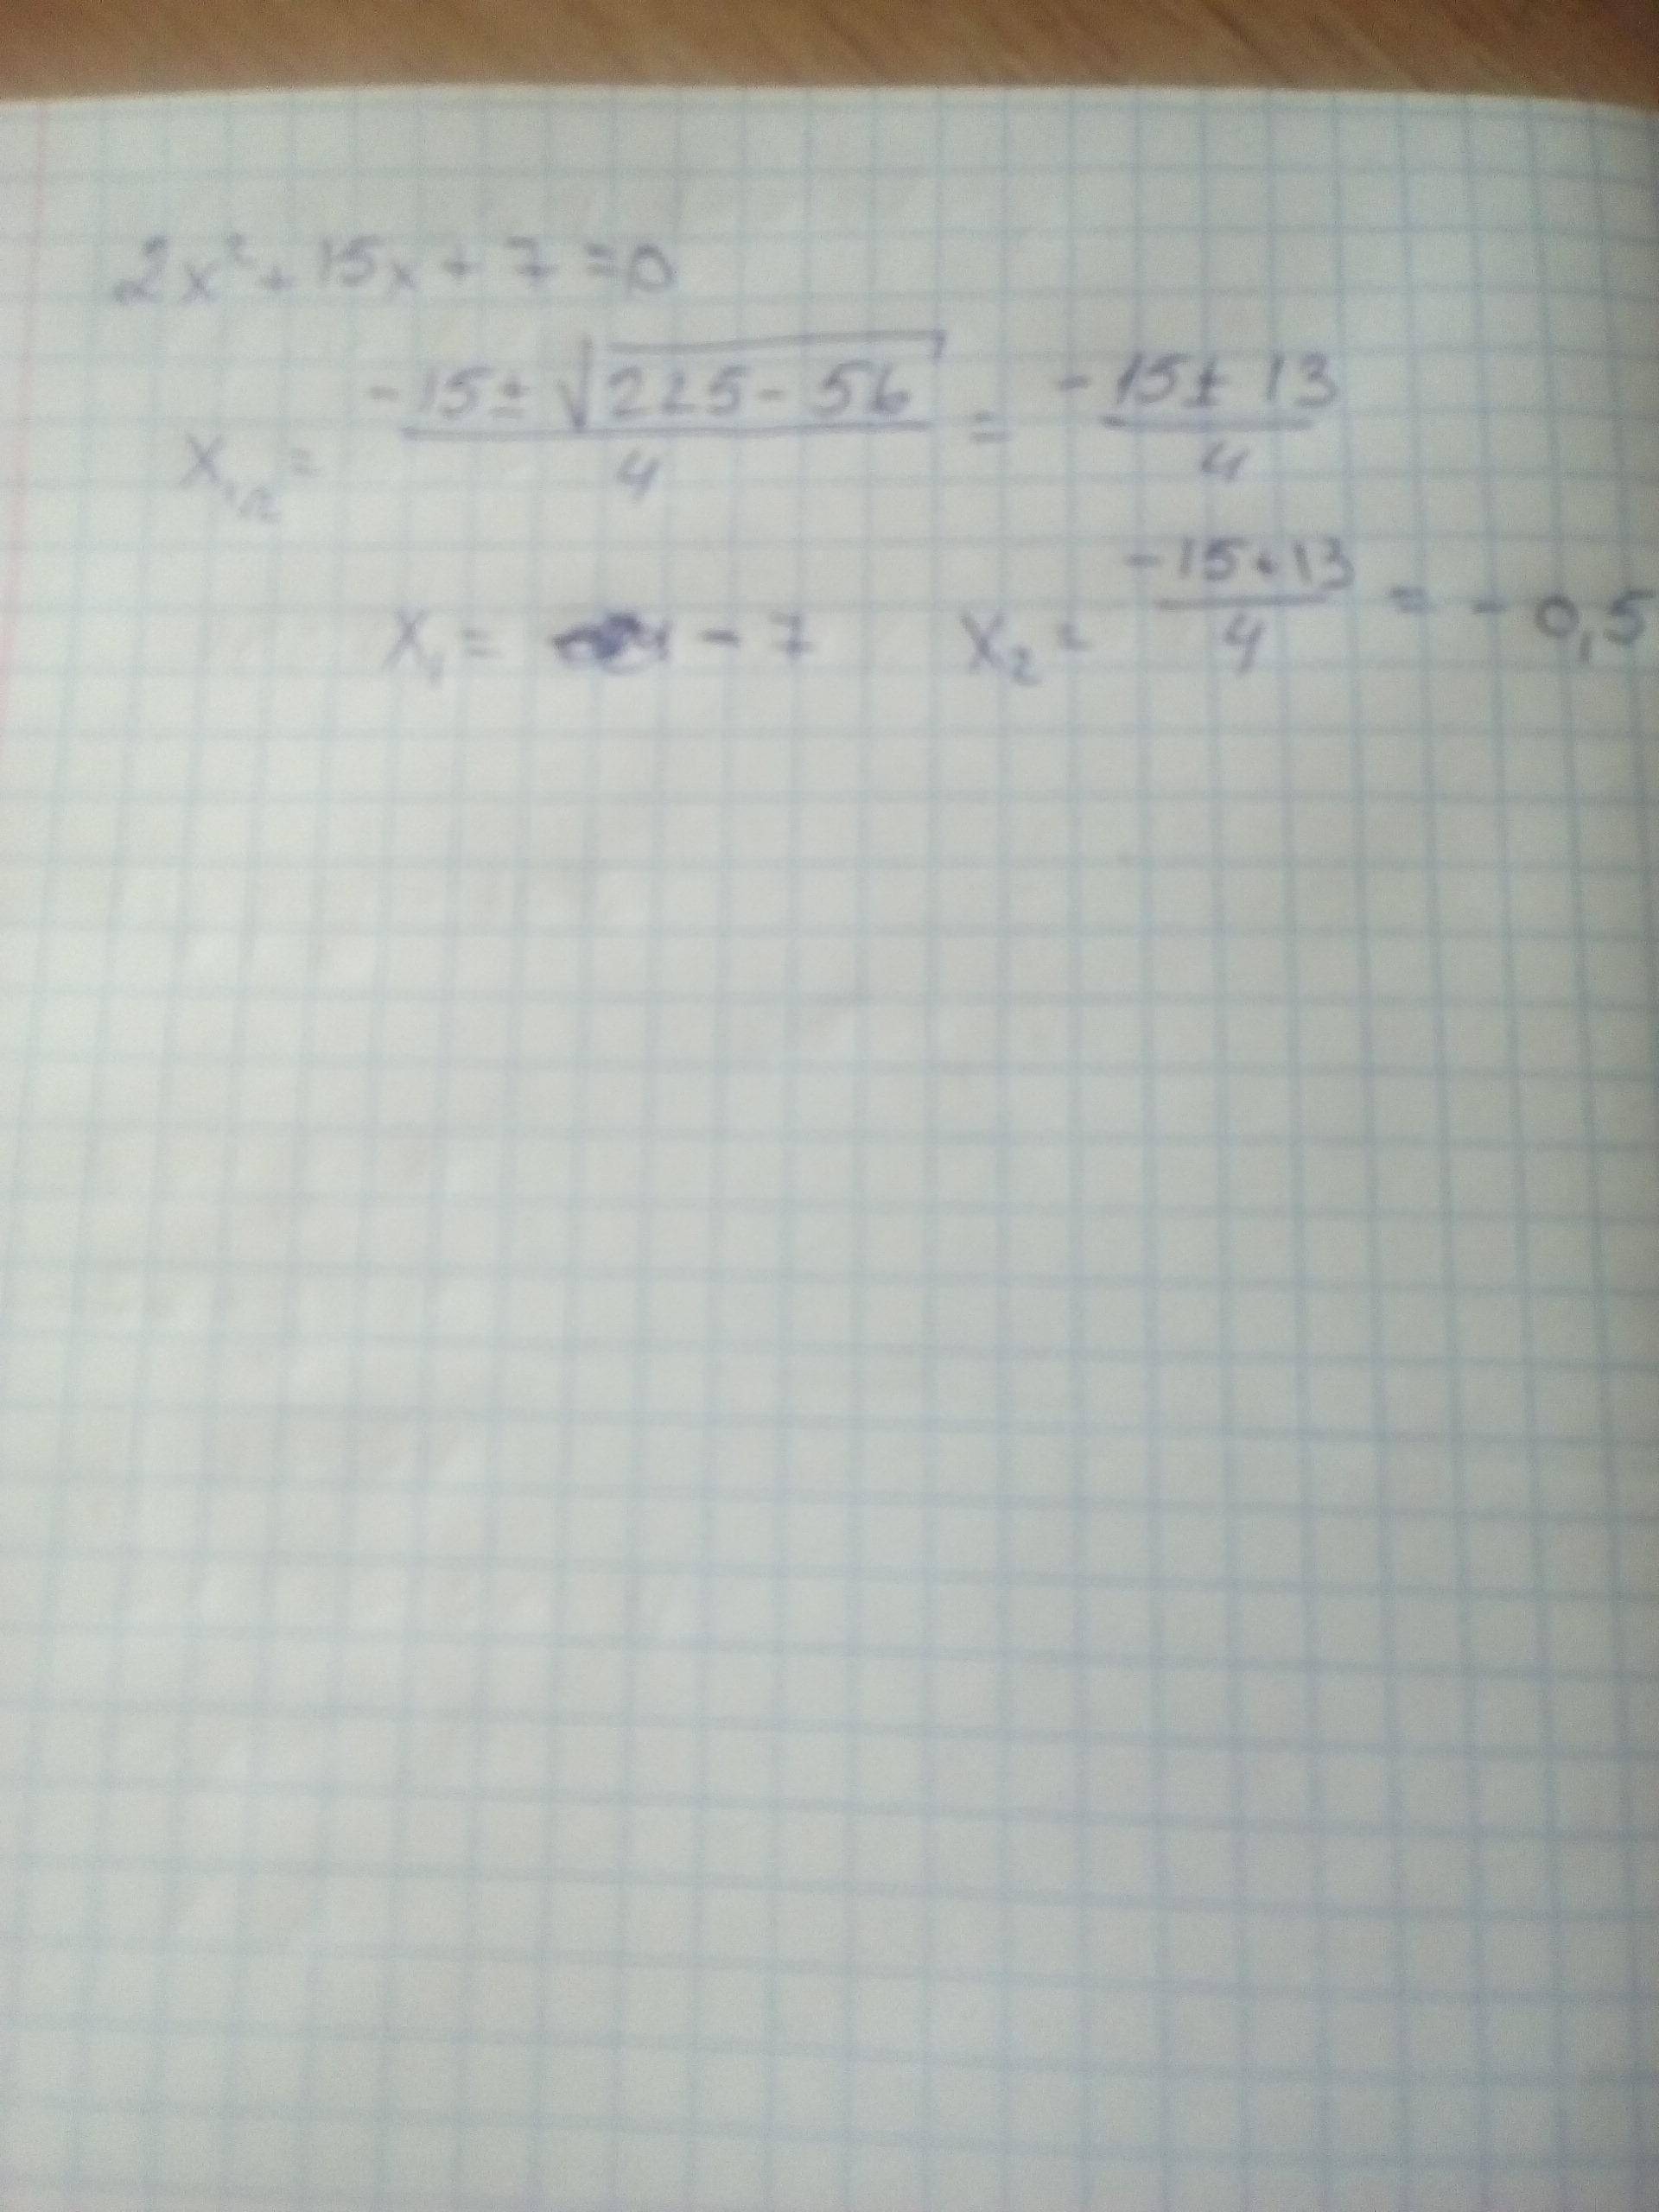 2x² + 15x + 7 = 0
x₁,₂ = (-15 ± √(225 - 56)) / 4 = (-15 ± 13) / 4
x₁ = - 7 x₂ = (-15 + 13) / 4 = - 0,5